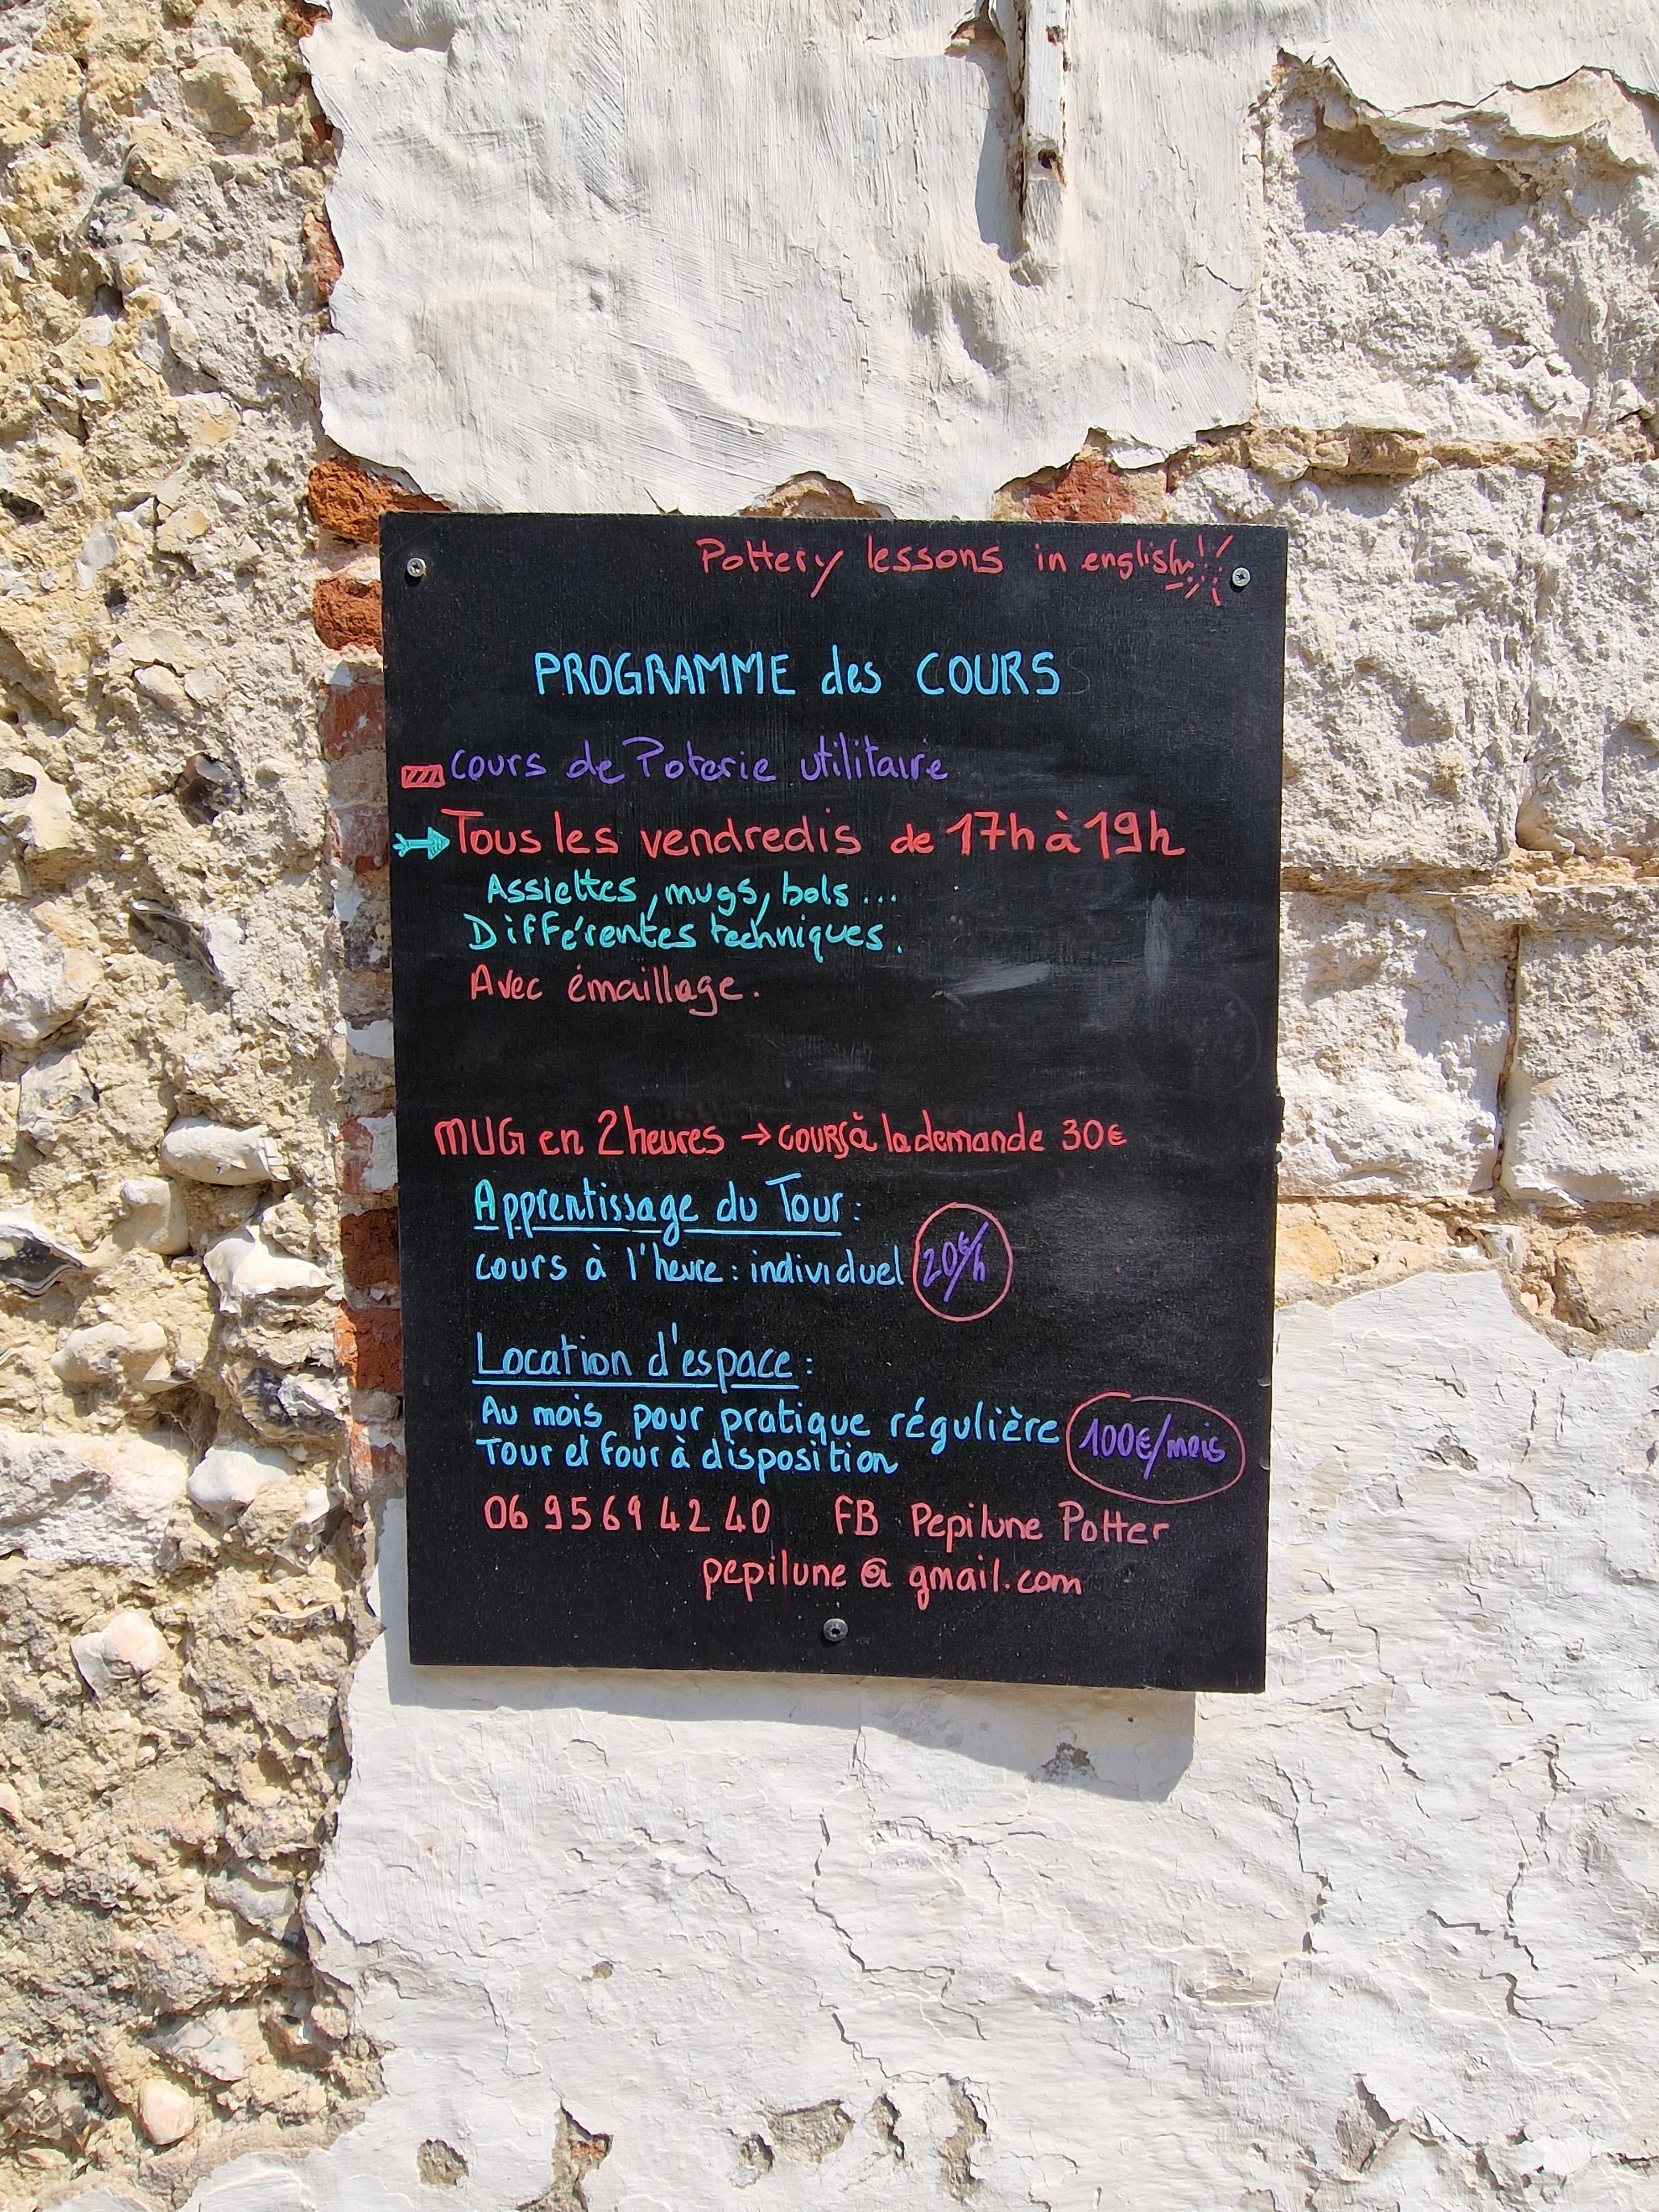 Pottery lessons in english!
PROGRAMME des COURS
cours de Poterie utilitaire
Tous les vendredis de 17h à 19h
Assiettes, mugs, bols...
Différentes techniques.
Avec émaillage.
MUG en 2 heures → cours à la demande 30€
Apprentissage du Tour :
cours à l'heure : individuel 20€/h
Location d'espace :
Au mois pour pratique régulière 100€/mois
Tour et four à disposition
06 95 69 42 40 FB Pepilune Potter
pepilune@gmail.com